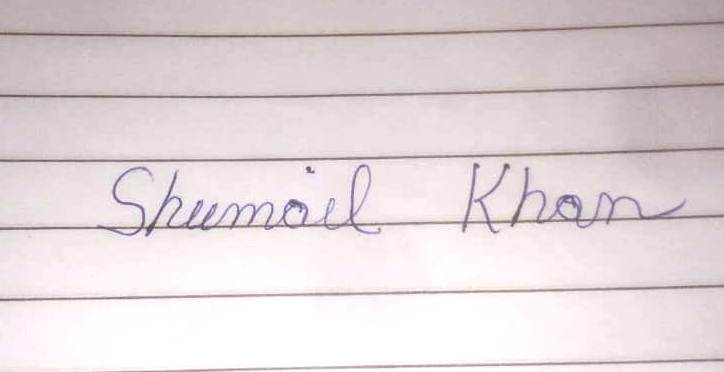 Shumail Khan